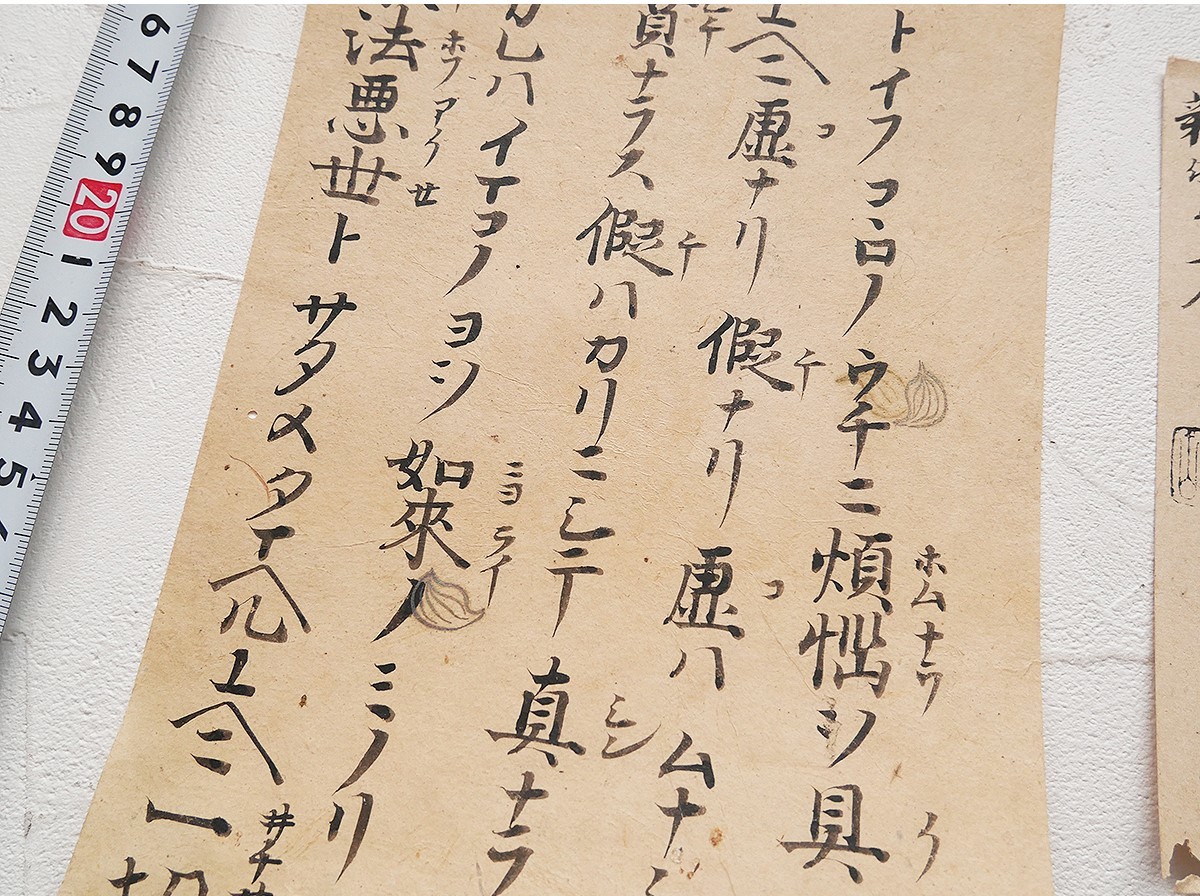 ホムナウ ク
トイフコヽロノウチニ煩悩ヲ具
コ ケ コ
ユヘニ虚ナリ假ナリ虚ハムナシ
ケ シン
實ナラス假ハカリニシテ真ナラ
ニヨライ
カレハイマコノヨヲ如來ノミノリ
ホフアクセ
法悪世トサタメタマヘルユヘニ一切
6 7 8 9 20 1 2 3 4 5